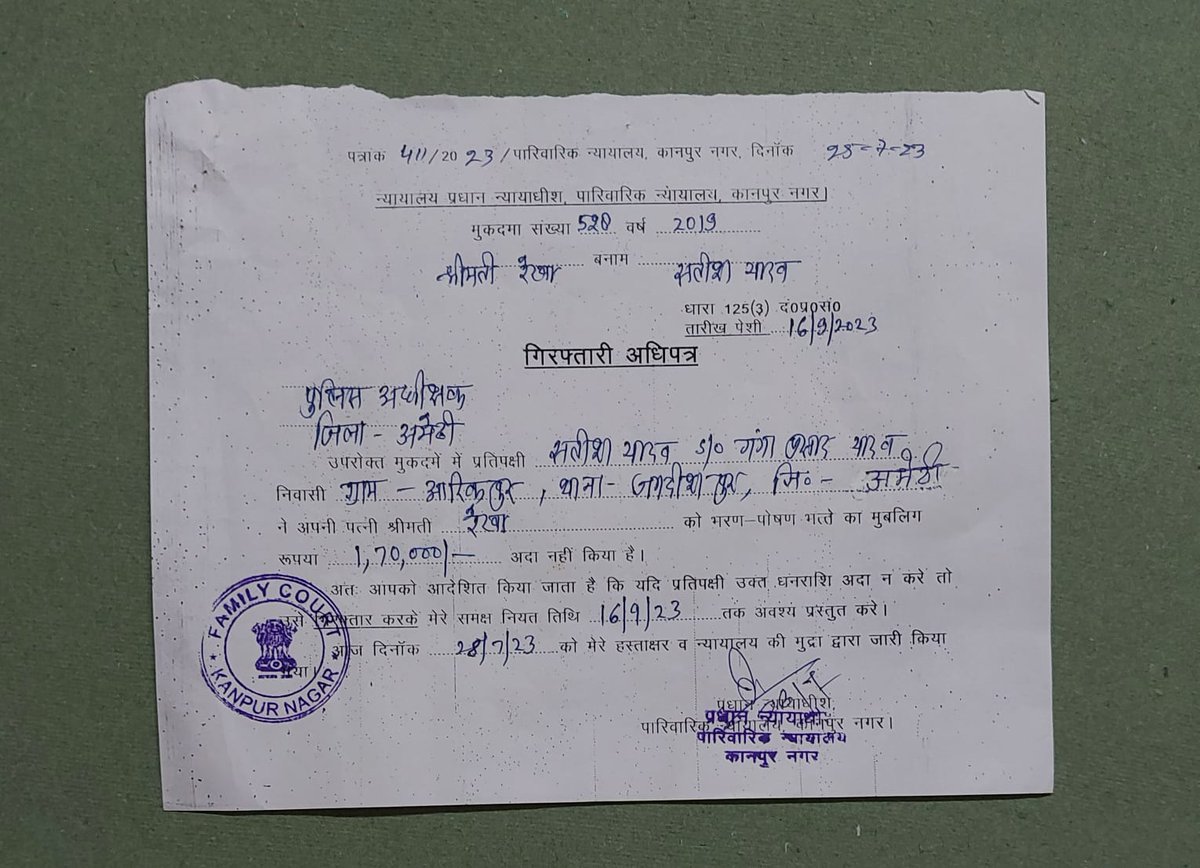 पत्रांक 411/2023/पारिवारिक न्यायालय, कानपुर नगर, दिनॉक 28-7-23
न्यायालय प्रधान न्यायाधीश, पारिवारिक न्यायालय, कानपुर नगर।
मुकदमा संख्या 520 वर्ष 2019
श्रीमती रेखा बनाम सतीश यादव
धारा 125(3) दं०प्र०सं०
तारीख पेशी 16/9/2023
गिरफ्तारी अधिपत्र
पुलिस अधीक्षक
जिला - अमेठी
उपरोक्त मुकदमें में प्रतिपक्षी सतीश यादव S/O गंगा प्रसाद यादव
निवासी ग्राम - , थाना- जगदीशपुर, जि०- अमेठी
ने अपनी पत्नी श्रीमती रेखा को भरण-पोषण भत्ते का मुबलिग
रूपया 1,70,000/- अदा नहीं किया है।
अतः आपको आदेशित किया जाता है कि यदि प्रतिपक्षी उक्त धनराशि अदा न करे तो
उसे गिरफ्तार करके मेरे समक्ष नियत तिथि 16/9/23 तक अवश्य प्रस्तुत करे।
आज दिनॉक 28/7/23 को मेरे हस्ताक्षर व न्यायालय की मुद्रा द्वारा जारी किया
गया।
FAMILY COURT
KANPUR NAGAR
प्रधान न्यायाधीश,
पारिवारिक न्यायालय कानपुर नगर।
प्रधान न्यायाधीश
पारिवारिक न्यायालय
कानपुर नगर